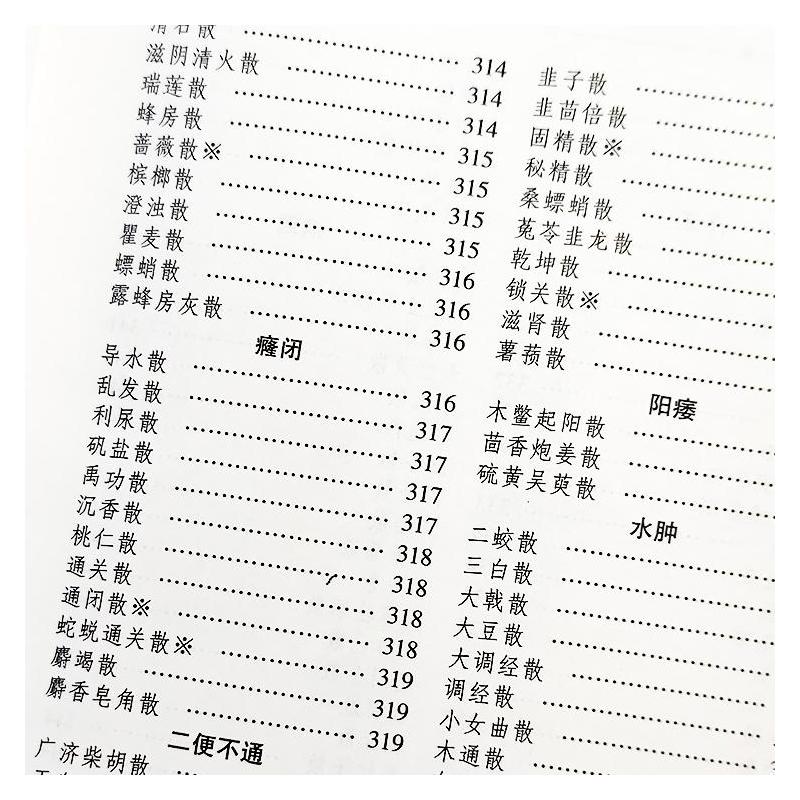 滑石散 …… 314
滋阴清火散 …… 314
瑞莲散 …… 314
蜂房散 …… 315
蔷薇散※ …… 315
槟榔散 …… 315
澄浊散 …… 315
瞿麦散 …… 316
螵蛸散 …… 316
露蜂房灰散 …… 316
癃闭
导水散 …… 316
乱发散 …… 317
利尿散 …… 317
矾盐散 …… 317
禹功散 …… 317
沉香散 …… 318
桃仁散 …… 318
通关散 …… 318
通闭散※ …… 318
蛇蜕通关散※ …… 319
麝竭散 …… 319
麝香皂角散 …… 319
二便不通
广济柴胡散 ……
韭子散 ……
韭茴倍散 ……
固精散※ ……
秘精散 ……
桑螵蛸散 ……
菟苓韭龙散 ……
乾坤散 ……
锁关散※ ……
滋肾散 ……
薯蓣散 ……
阳痿
木鳖起阳散 ……
茴香炮姜散 ……
硫黄吴萸散 ……
水肿
二蛟散 ……
三白散 ……
大戟散 ……
大豆散 ……
大调经散 ……
调经散 ……
小女曲散 ……
木通散 ……